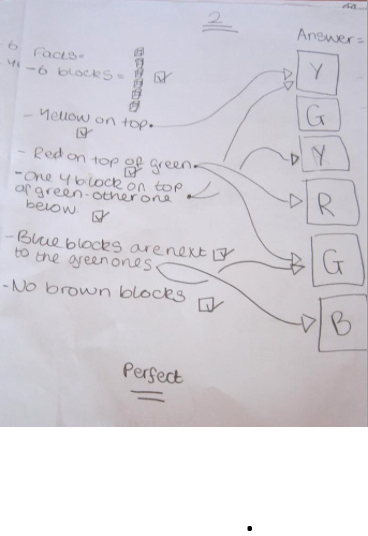 2
Answer =
Facts-
-6 blocks =
- Yellow on top.
- Red on top of green.
-One y block on top
of green-other one
below.
-Blue blocks are next
to the green ones
-No brown blocks
Y
G
Y
R
G
B
Perfect